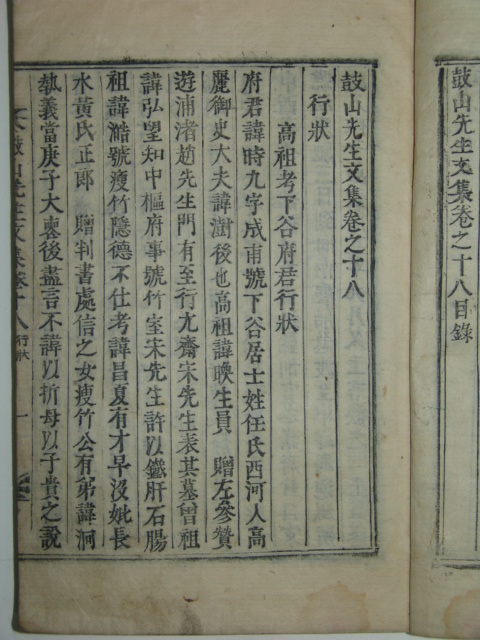 鼓山先生文集卷之十八目錄
鼓山先生文集卷之十八
行狀
高祖考下谷府君行狀
府君諱時九字成甫號下谷居士姓任氏西河人高
麗御史大夫諱澍後也高祖諱暎生員 贈左參贊
遊浦渚趙先生門有至行尤齋宋先生表其墓曾祖
諱弘望知中樞府事號竹室宋先生許以鐵肝石腸
祖諱澔號瘦竹隱德不仕考諱昌夏有才早沒妣長
水黃氏正郎 贈判書處信之女瘦竹公有弟諱泂
執義當庚子大喪後盡言不諱以折母以子貴之說
鼓山先生文集卷十八 行狀 一